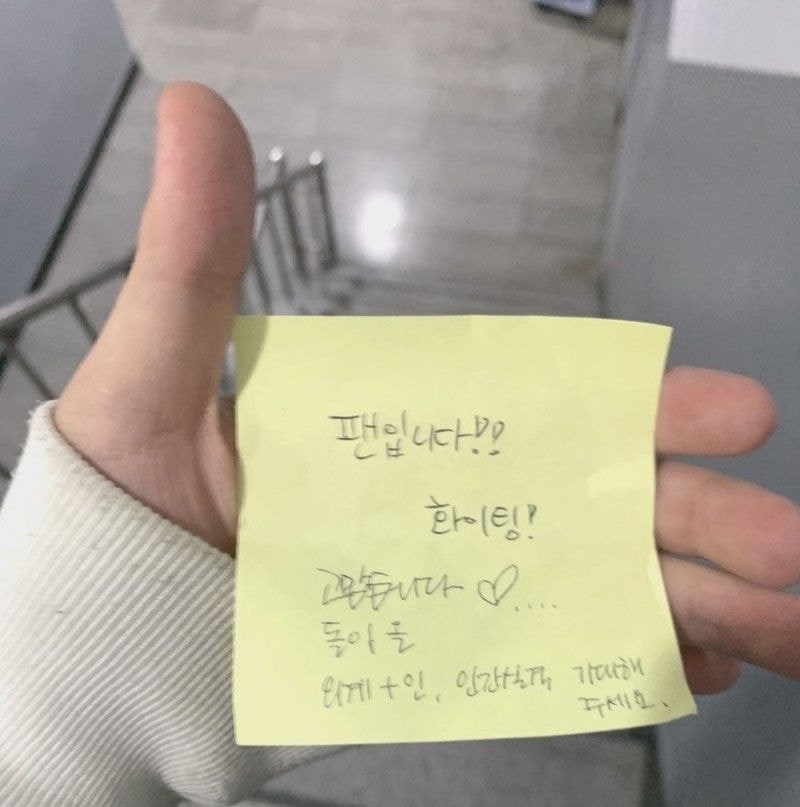 팬입니다!!
화이팅!
고맙습니다 ♡....
돌아올
외계+인, 인간실격 기대해
주세요.